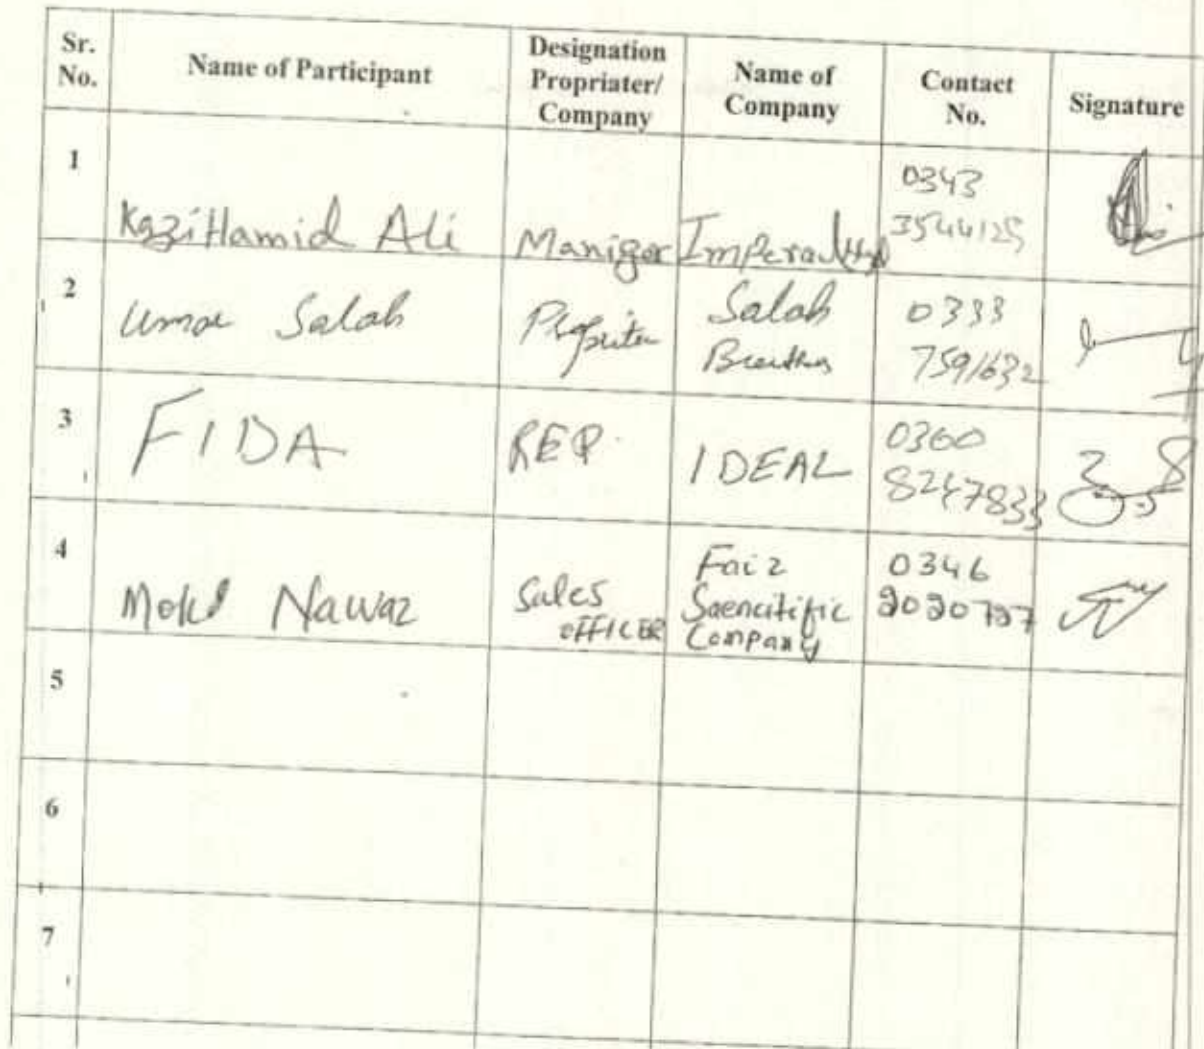 Sr. No.
Name of Participant
Designation Propriater/ Company
Name of Company
Contact No.
Signature
1
Kazi Hamid Ali
Maniger
Imperal Hyd
0343
3544125
2
Umar Salah
Salah
0333
7591632
3
FIDA
REP
IDEAL
0360
8247833
4
Mohd Nawaz
Sales
OFFICER
Faiz
Saencitific
Company
0346
5
6
7